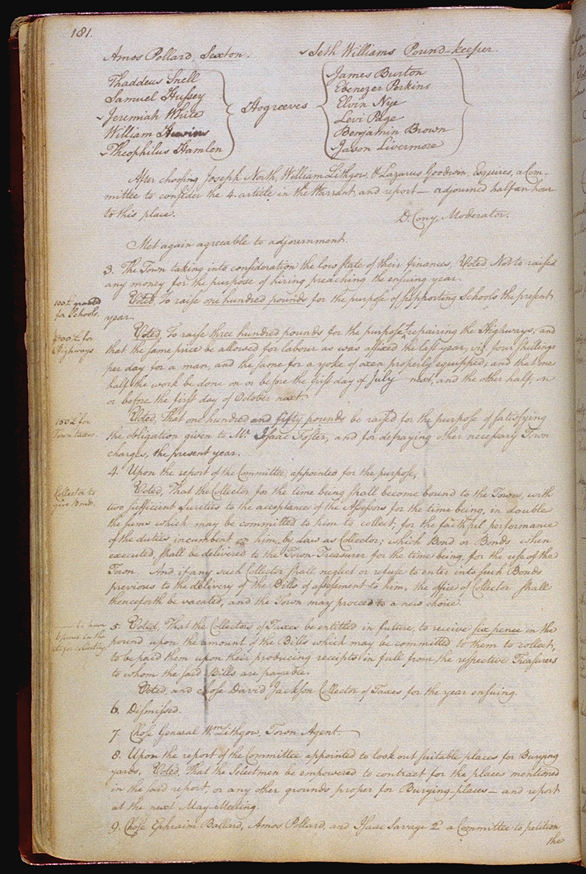 181.
Amos Pollard, Sexton. Seth Williams Pound-keeper.
Thaddeus Snell
Samuel Hussey
Jeremiah White
William
Theophilus Hamlen
Hogreeves
James Burton
Ebenezer Perkins
Elvin Nye
Levi Page
Benjamin Brown
Jason Livermore
After choosing Joseph North, William Lithgow, & Lazarus Goodwin, Esquires, a Com-
mittee to consider the 4. article in the Warrant, and report — adjourned half an hour
to this place.
D. Cony, Moderator.
Met again agreeable to adjournment.
3. The Town taking into consideration the low state of their finances, Voted Not to raise
any money for the purpose of hiring preaching the ensuing year.
100£ granted
for Schools.
Voted, To raise one hundred pounds for the purpose of supporting Schools the present
year.
300£ for
Highways
Voted, To raise three hundred pounds for the purpose repairing the Highways, and
that the same price be allowed for labour as was affixed the last year, viz. four shillings
per day for a man, and the same for a yoke of oxen properly equipped; and the one
half the work be done on or before the first day of July next, and the other half, on
or before the first day of October next.
150£ for
Town taxes.
Voted, That one hundred and fifty pounds be raised for the purpose of satisfying
the obligation given to Mr. Isaac Foster, and for defraying other necessary Town
charges, the present year.
4. Upon the report of the Committee, appointed for the purpose,
Collector to
give Bond.
Voted, That the Collector for the time being shall become bound to the Town, with
two sufficient sureties to the acceptance of the Assessors for the time being, in double
the sums which may be committed to him to collect, for the faithful performance
of the duties incumbent on him, by law as Collector; which Bond or Bonds when
executed, shall be delivered to the Town Treasurer for the time being, for the use of the
Town. And if any such Collector shall neglect or refuse to enter into such Bonds
previous to the delivery of the Bills of assessment to him, the office of Collector shall
thenceforth be vacated, and the Town may proceed to a new choice.
to have
6 pence in the
5. Voted, That the Collectors of Taxes be entitled in future, to receive six pence in the
pound upon the amount of the Bills which may be committed to them to collect,
to be paid them upon their producing receipts in full from the respective Treasurers
to whom the said Bills are payable.
Voted, and chose David Jackson Collector of Taxes for the year ensuing.
6. Dismissed.
7. Chose General Wm Lithgow, Town Agent.
8. Upon the report of the Committee appointed to look out suitable places for Burying
yards, Voted, That the Selectmen be empowered to contract for the places mentioned
in the said report, or any other grounds proper for Burying-places — and report
at the next May-Meeting.
9. Chose Ephraim Ballard, Amos Pollard, and Isaac Savage 2d a Committee to petition
the